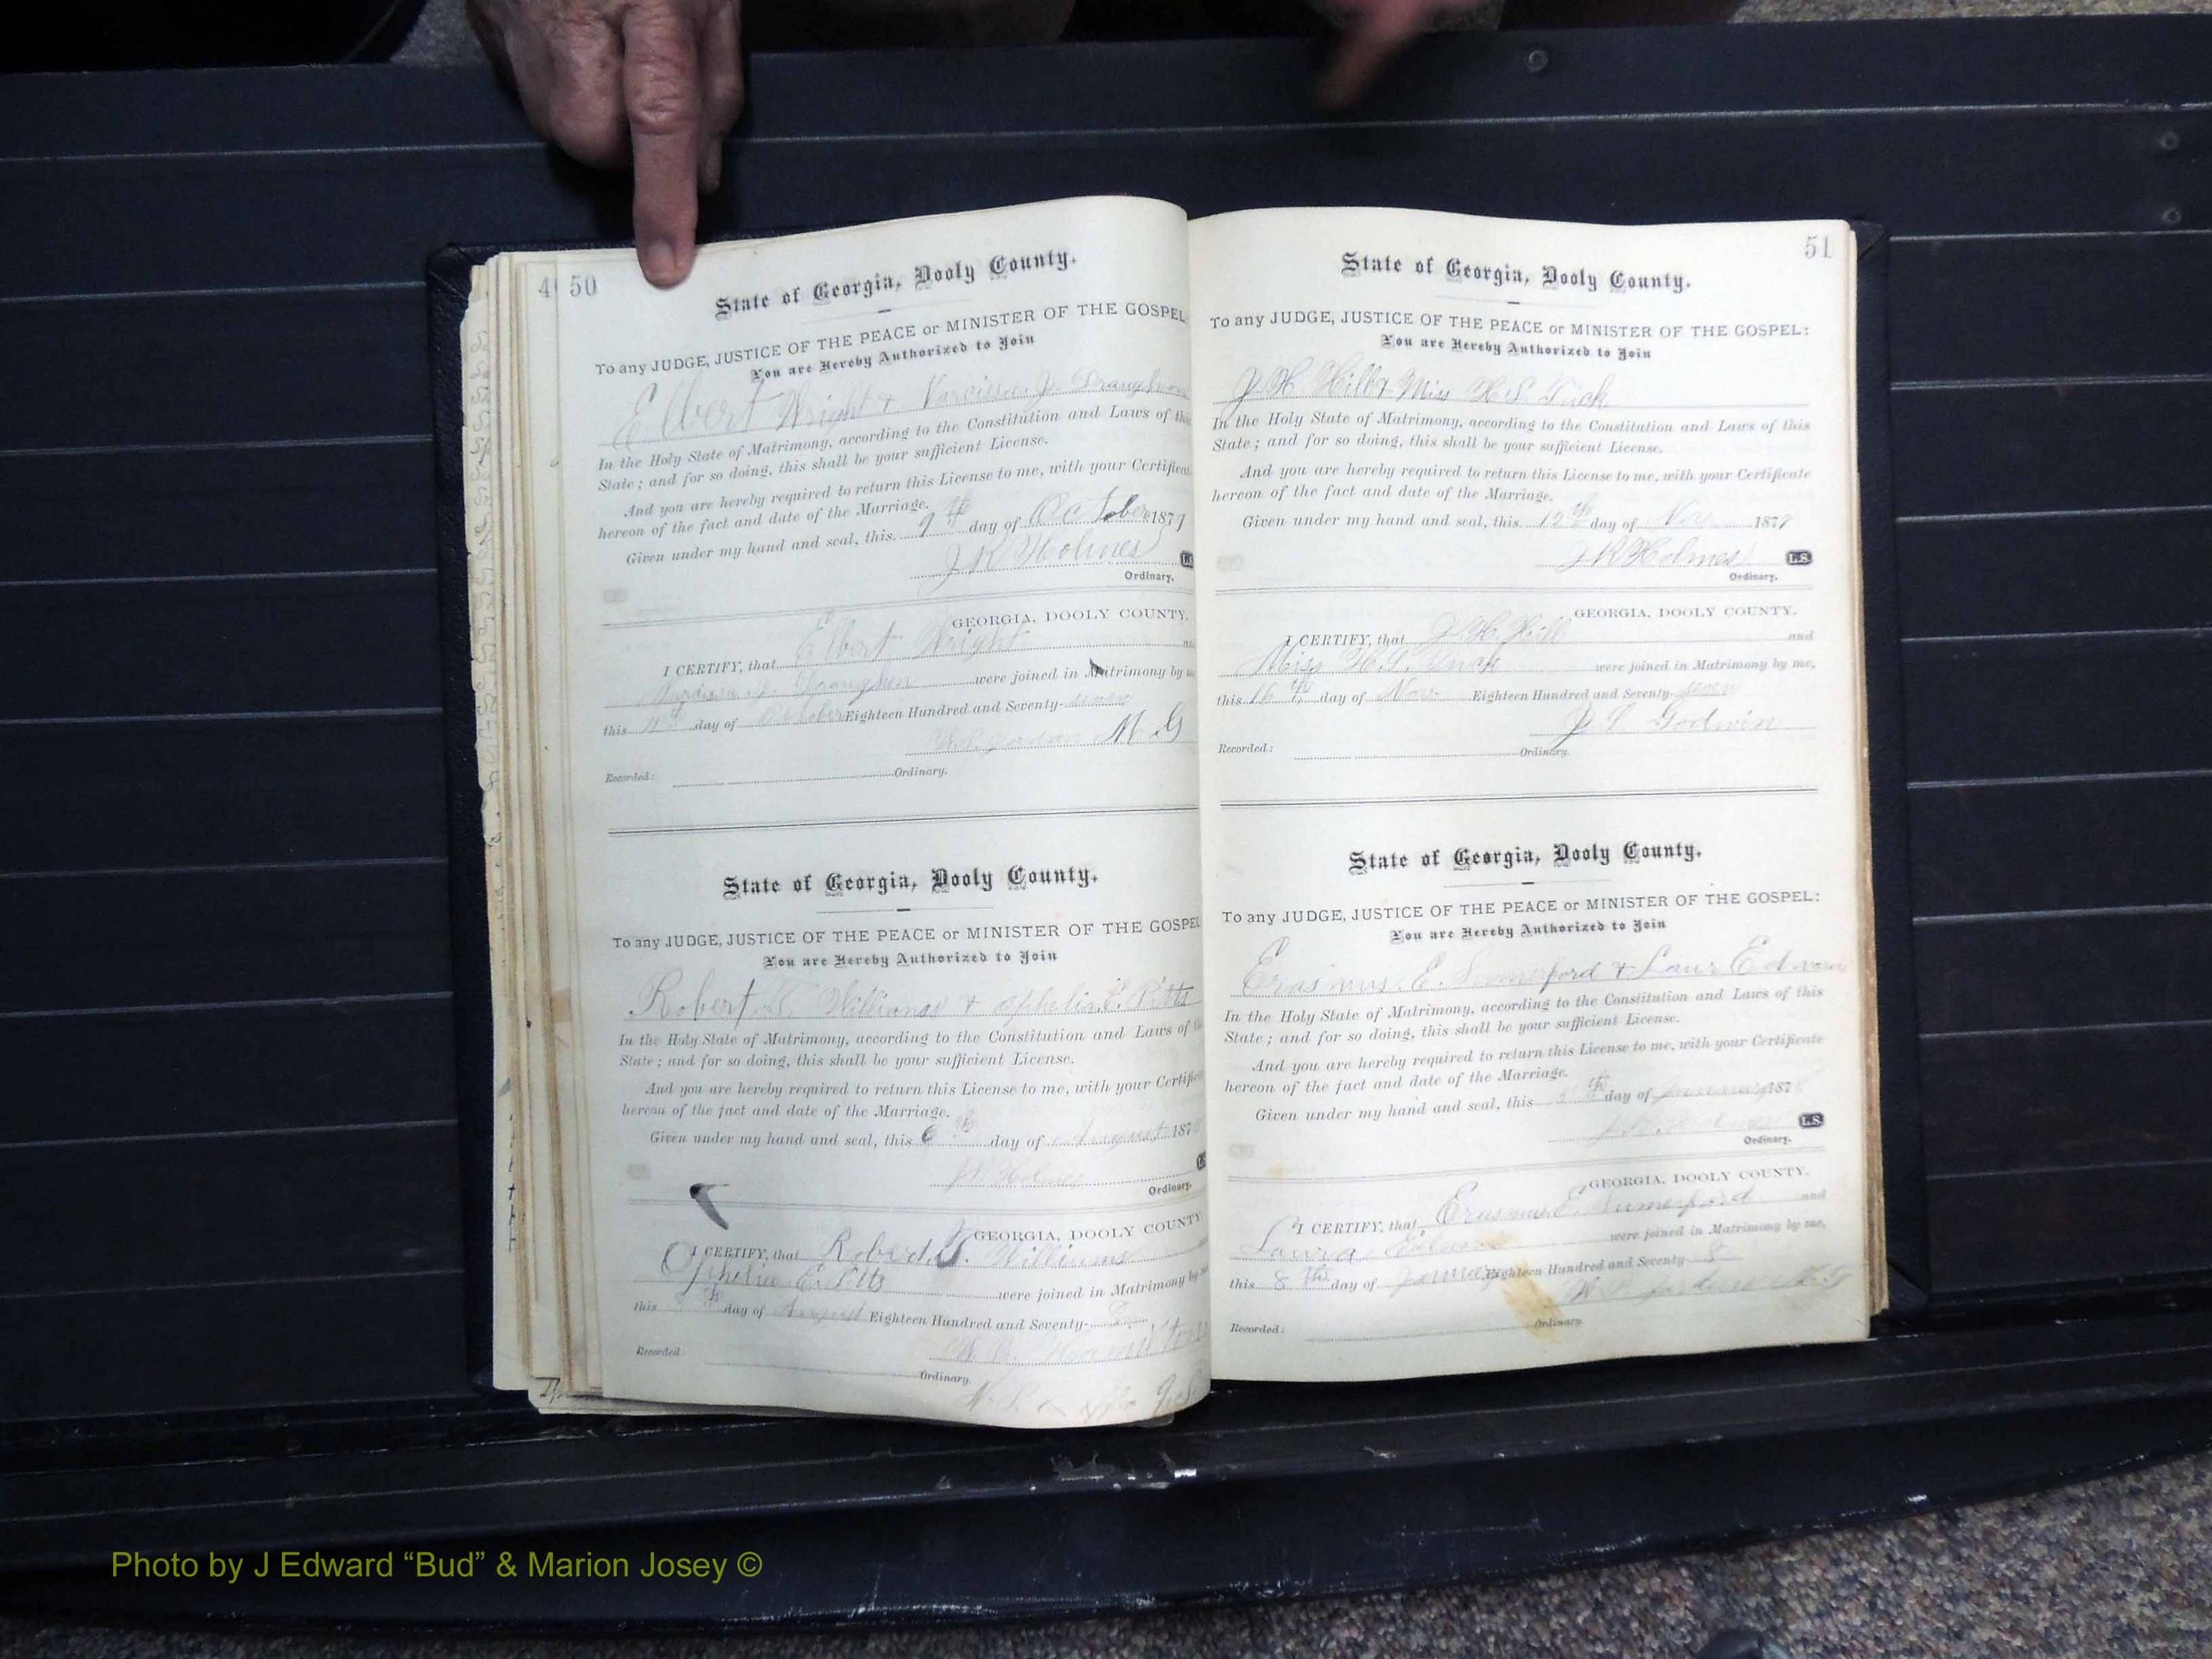 4 50
State of Georgia, Dooly County.
To any JUDGE, JUSTICE OF THE PEACE or MINISTER OF THE GOSPEL
You are Hereby Authorized to Join
Elbert Wright & Narcissa J.
In the Holy State of Matrimony, according to the Constitution and Laws of this
State; and for so doing, this shall be your sufficient License.
And you are hereby required to return this License to me, with your Certificate
hereon of the fact and date of the Marriage.
Given under my hand and seal, this 9th day of October 1877
J R Holmes L.S.
Ordinary.
GEORGIA, DOOLY COUNTY.
I CERTIFY, that Elbert Wright and
were joined in Matrimony by me
this 11th day of October Eighteen Hundred and Seventy-seven
Jordan M.G
Recorded: Ordinary.
State of Georgia, Dooly County.
To any JUDGE, JUSTICE OF THE PEACE or MINISTER OF THE GOSPEL
You are Hereby Authorized to Join
Robert Williams & Ophelia E. Pitts
In the Holy State of Matrimony, according to the Constitution and Laws of
State; and for so doing, this shall be your sufficient License.
And you are hereby required to return this License to me, with your Certific
hereon of the fact and date of the Marriage.
Given under my hand and seal, this 6th day of August 187
Holmes
Ordinary.
GEORGIA, DOOLY COUNTY
I CERTIFY, that Robert Williams
Ophelia E. Pitts were joined in Matrimony by
this day of August Eighteen Hundred and Seventy-
Recorded: Ordinary.
51
State of Georgia, Dooly County.
To any JUDGE, JUSTICE OF THE PEACE or MINISTER OF THE GOSPEL:
You are Hereby Authorized to Join
J H Hill & Miss H.S. Tuck
In the Holy State of Matrimony, according to the Constitution and Laws of this
State; and for so doing, this shall be your sufficient License.
And you are hereby required to return this License to me, with your Certificate
hereon of the fact and date of the Marriage.
Given under my hand and seal, this day of Nov 1877
J R Holmes L.S.
Ordinary.
GEORGIA, DOOLY COUNTY.
I CERTIFY, that J H Hill and
Miss H.S. Tuck were joined in Matrimony by me,
this 16th day of Nov Eighteen Hundred and Seventy-seven
Godwin
Recorded: Ordinary.
State of Georgia, Dooly County.
To any JUDGE, JUSTICE OF THE PEACE or MINISTER OF THE GOSPEL:
You are Hereby Authorized to Join
Erasmus E. Sumerford &
In the Holy State of Matrimony, according to the Constitution and Laws of this
State; and for so doing, this shall be your sufficient License.
And you are hereby required to return this License to me, with your Certificate
hereon of the fact and date of the Marriage.
Given under my hand and seal, this day of January 187
L.S.
Ordinary.
GEORGIA, DOOLY COUNTY.
I CERTIFY, that Erasmus E. Sumerford and
Laura were joined in Matrimony by me,
this 8th day of Eighteen Hundred and Seventy-8
Recorded: Ordinary.
Photo by J Edward “Bud” & Marion Josey ©